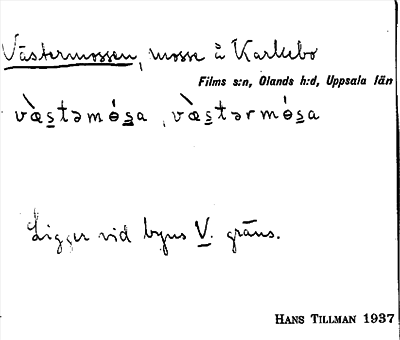 Västermossen, mosse å Karlebo
Films s:n, Olands h:d, Uppsala län
væ̀stəmɵ́sa, væ̀stərmɵ́sa
Ligger vid byns V. gräns.
HANS TILLMAN 1937